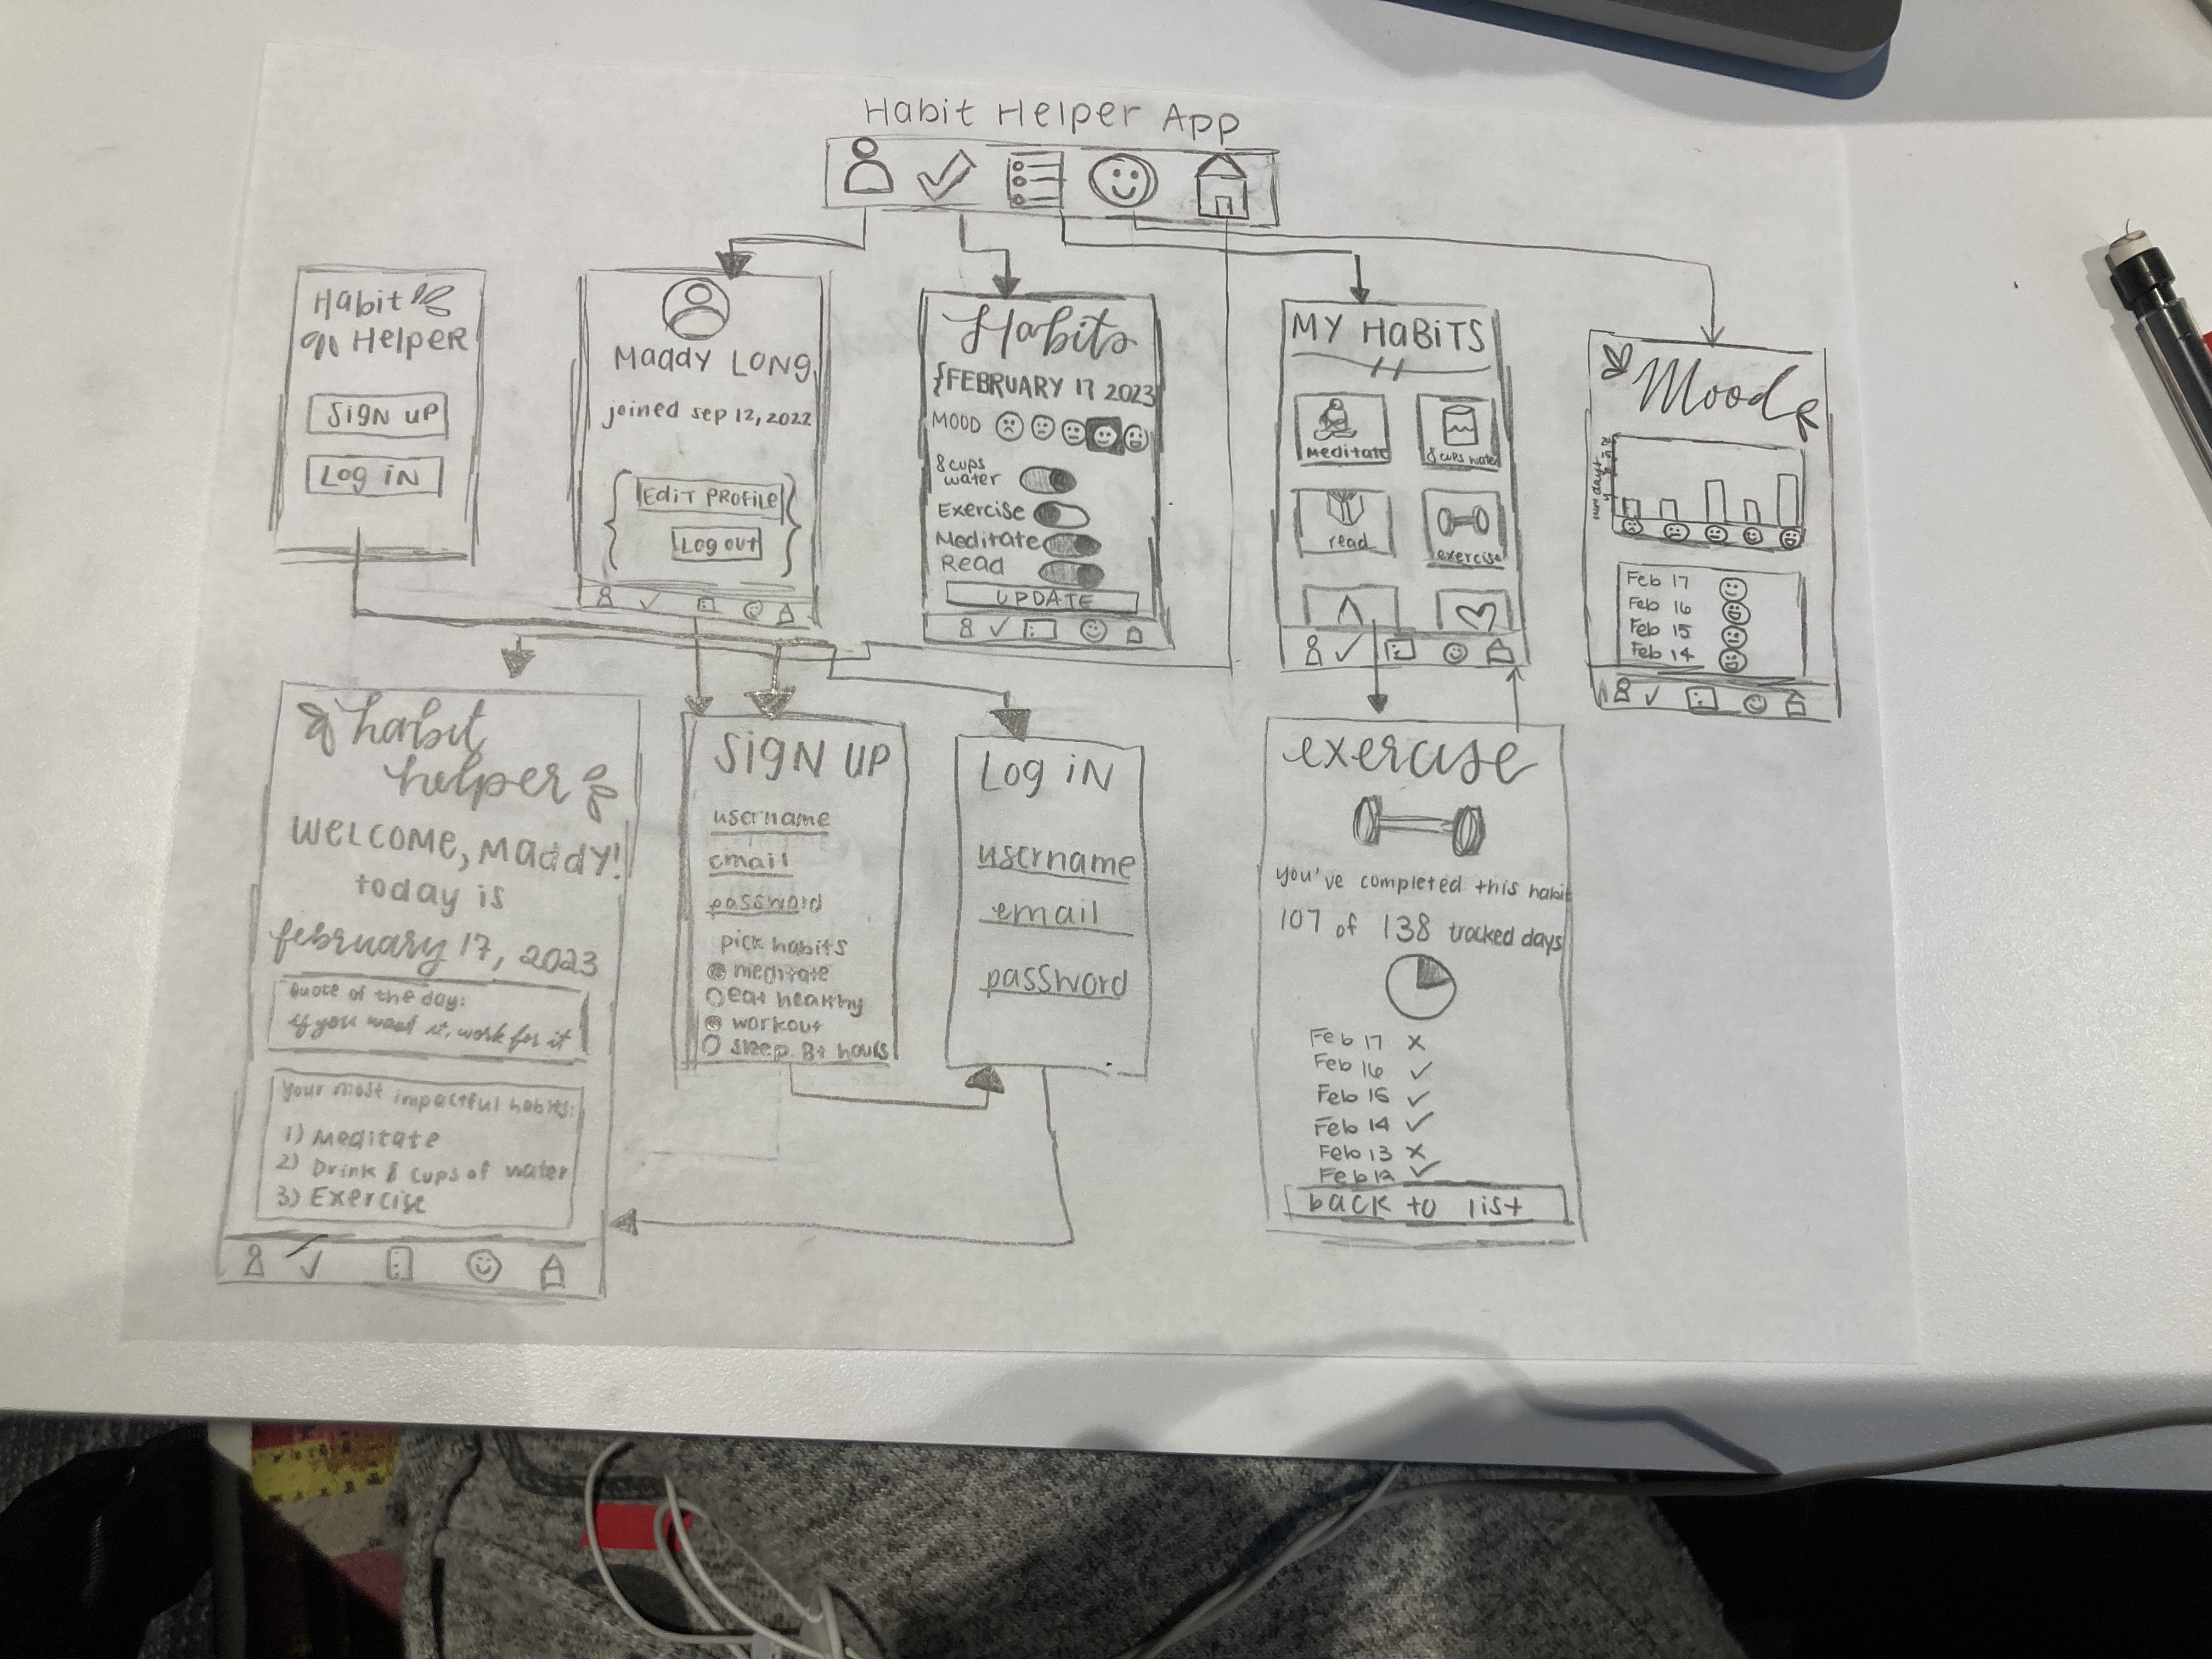 Habit Helper App
Habit
Helper
Sign up
Log in
Maddy Long
joined sep 12, 2022
Edit profile
Log out
Habits
FEBRUARY 17 2023
MOOD
8 cups
water
Exercise
Meditate
Read
UPDATE
MY HABITS
meditate
8 cups water
read
exercise
Mood
num days
Feb 17
Feb 16
Feb 15
Feb 14
habit
helper
Welcome, Maddy!
today is
february 17, 2023
quote of the day:
if you want it, work for it
your most impactful habits:
1) Meditate
2) Drink 8 cups of water
3) Exercise
Sign up
username
email
password
pick habits
meditate
eat healthy
workout
sleep 8+ hours
Log in
username
email
password
exercise
you've completed this habit
107 of 138 tracked days
Feb 17 x
Feb 16 ✓
Feb 15 ✓
Feb 14 ✓
Feb 13 x
Feb 12 ✓
back to list